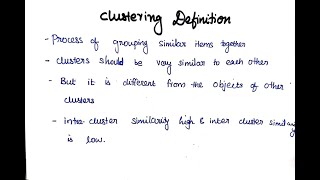 Clustering Definition
- Process of grouping similar items together
- Clusters should be very similar to each other
- But it is different from the objects of other
clusters
- Intra-cluster similarity high & inter cluster similarity
is low.